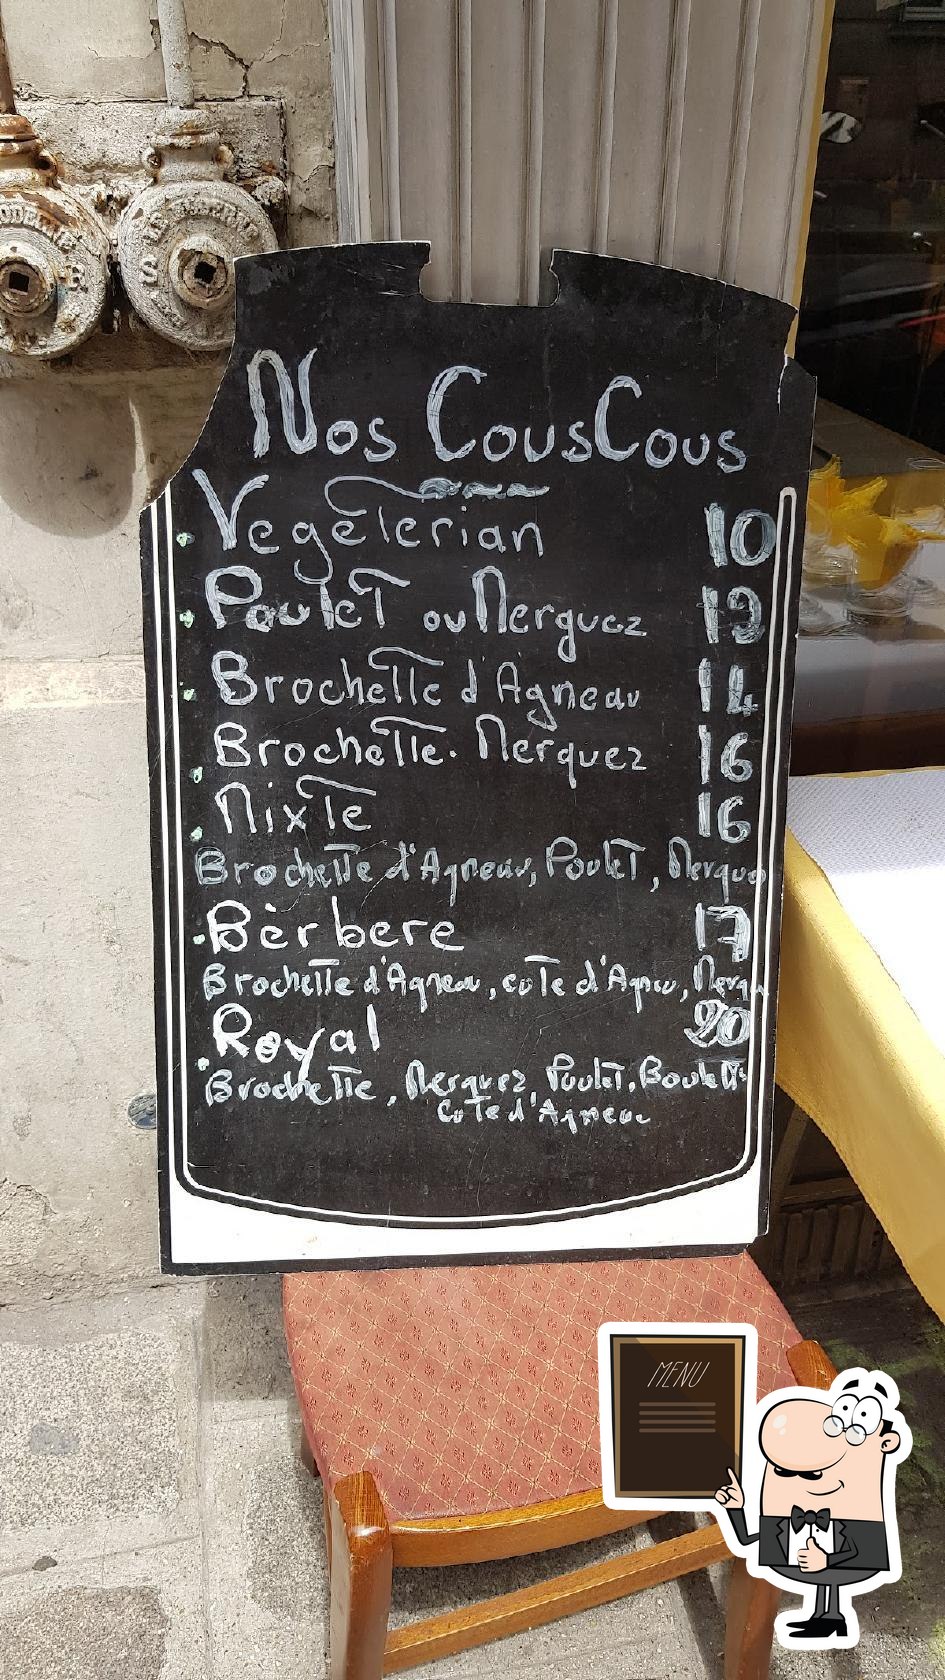 Nos CousCous
Vegeterian 10
Poulet ou Merguez 12
Brochette d'Agneau 14
Brochette. Merquez 16
Mixte 16
Brochette d'Agneau, Poulet, Merquez
Bèrbere 17
Brochette d'Agneau, cote d'Agneu, Merqu
Royal 20
Brochette, Merquez Poulet, Boulette
Cote d'Agneau
MENU